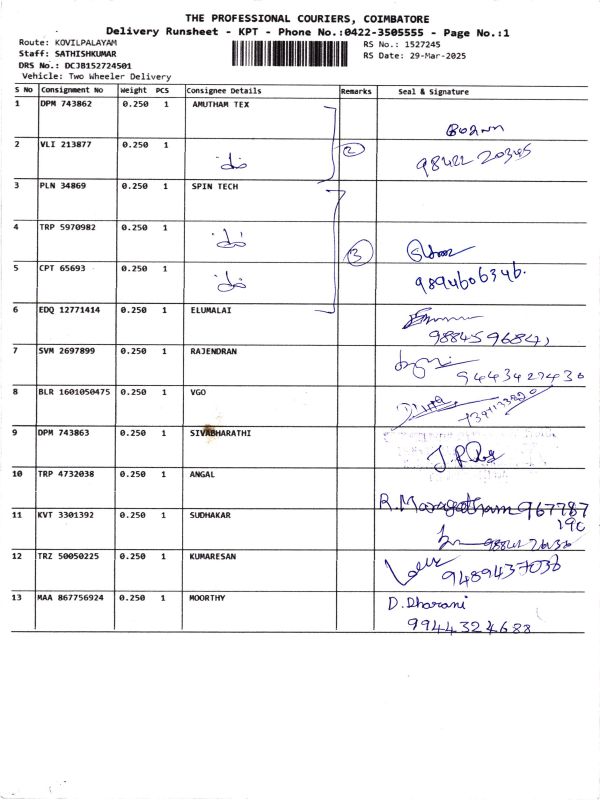 THE PROFESSIONAL COURIERS, COIMBATORE
Delivery Runsheet - KPT - Phone No.:0422-3505555 - Page No.:1
Route: KOVILPALAYAM
RS No.: 1527245
Staff: SATHISHKUMAR
RS Date: 29-Mar-2025
DRS No.: DCJB152724501
Vehicle: Two Wheeler Delivery
S No Consignment No Weight PCS Consignee Details Remarks Seal & Signature
1 DPM 743862 0.250 1 AMUTHAM TEX
2 VLI 213877 0.250 1
2
98422 20345
3 PLN 34869 0.250 1 SPIN TECH
4 TRP 5970982 0.250 1
3
5 CPT 65693 0.250 1
9894606346.
6 EDQ 12771414 0.250 1 ELUMALAI
7 SVM 2697899 0.250 1 RAJENDRAN
9443427430
8 BLR 1601050475 0.250 1 VGO
9 DPM 743863 0.250 1 SIVABHARATHI
10 TRP 4732038 0.250 1 ANGAL
R. Maragatham 967787
190
11 KVT 3301392 0.250 1 SUDHAKAR
12 TRZ 50050225 0.250 1 KUMARESAN
9489437036
13 MAA 867756924 0.250 1 MOORTHY
D. Dharani
9944324688